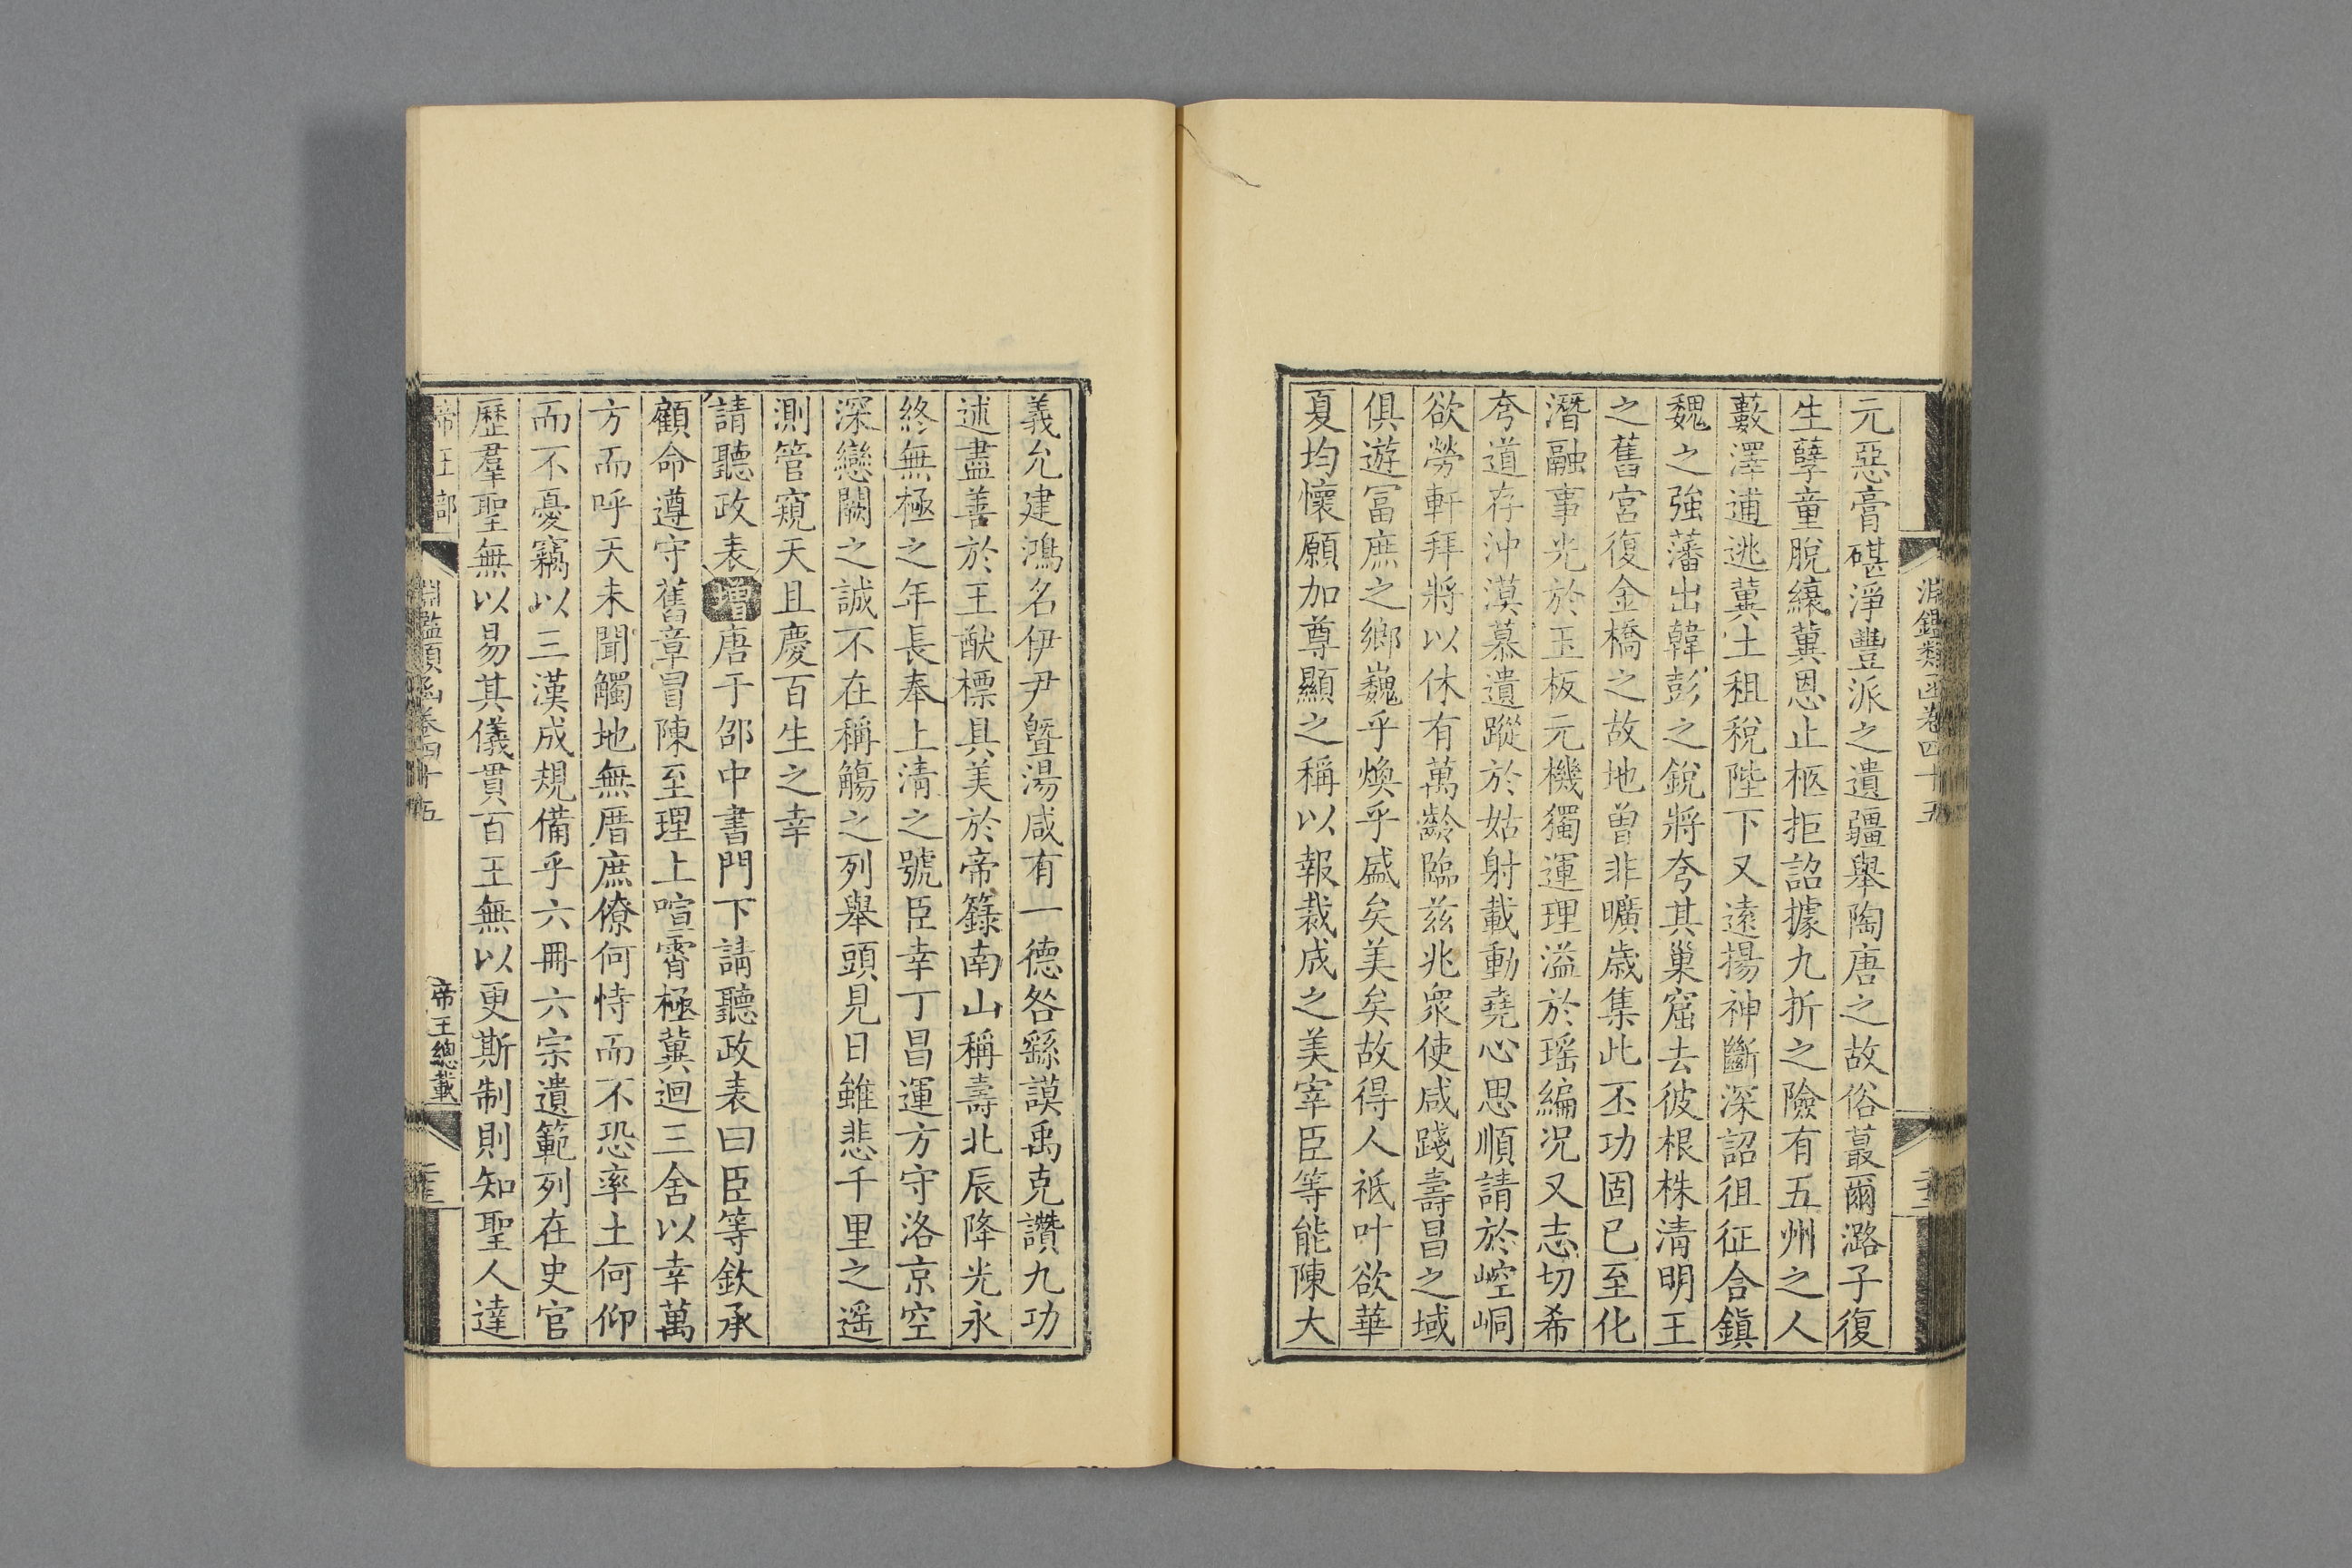 淵鑑類函卷四十五
元惡膏碪淨豐派之遺疆舉陶唐之故俗蕞爾潞子復
生孽童脫纕冀恩止柩拒詔據九折之險有五州之人
藪澤逋逃冀土租稅陛下又遠揚神斷深詔徂征合鎮
魏之強藩出韓彭之銳將夸其巢窟去彼根株清明王
之舊宮復金橋之故地曾非曠歲集此丕功固已至化
潛融事光於玉板元機獨運理溢於瑤編況又志切希
夸道存沖漠慕遺蹤於姑射載動堯心思順請於崆峒
欲勞軒拜將以休有萬齡臨茲兆衆使咸踐壽昌之域
俱遊冨庶之鄉巍乎煥乎盛矣美矣故得人祗叶欲華
夏均懷願加尊顯之稱以報裁成之美宰臣等能陳大
義允建鴻名伊尹曁湯咸有一德咎繇謨禹克讚九功
述盡善於王猷標具美於帝籙南山稱壽北辰降光永
終無極之年長奉上清之號臣幸丁昌運方守洛京空
深戀闕之誠不在稱觴之列舉頭見日雖悲千里之遥
測管窺天且慶百生之幸
請聽政表增唐于邵中書門下請聽政表曰臣等欽承
顧命遵守舊章冒陳至理上喧霄極冀迴三舍以幸萬
方而呼天未聞觸地無厝庶僚何恃而不恐率土何仰
而不憂竊以三漢成規備乎六冊六宗遺範列在史官
歷羣聖無以易其儀貫百王無以更斯制則知聖人達
帝王部
淵鑑類函卷四十五
帝王總載